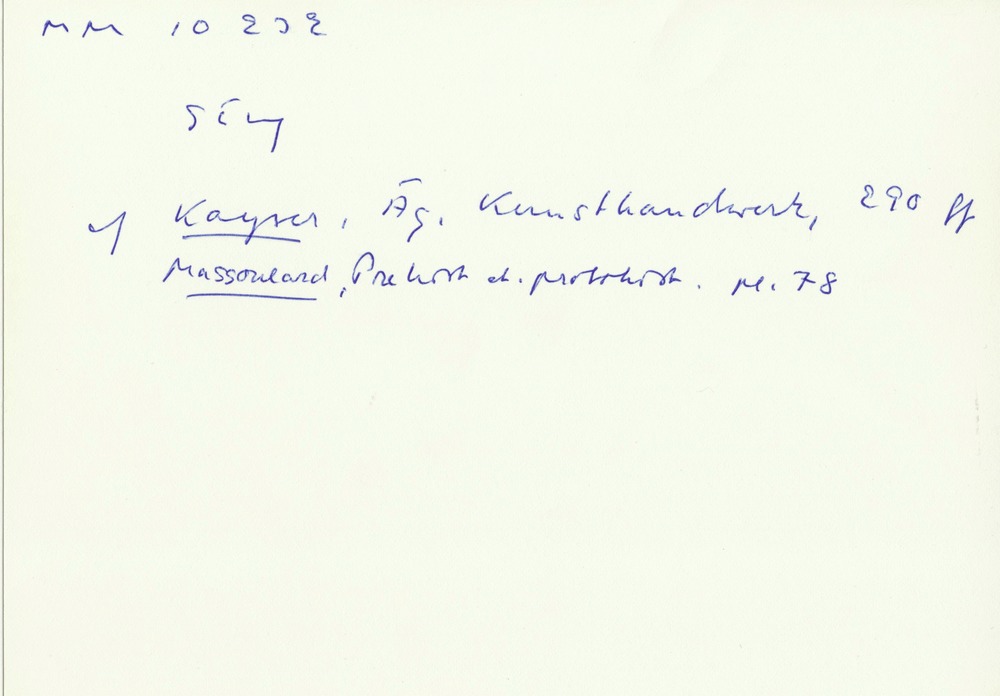 MM 10 232
Säng
cf Kayser, Äg. Kunsthandwerk, 290 ff
Massoulard, Prehist et. protohist. pl. 78